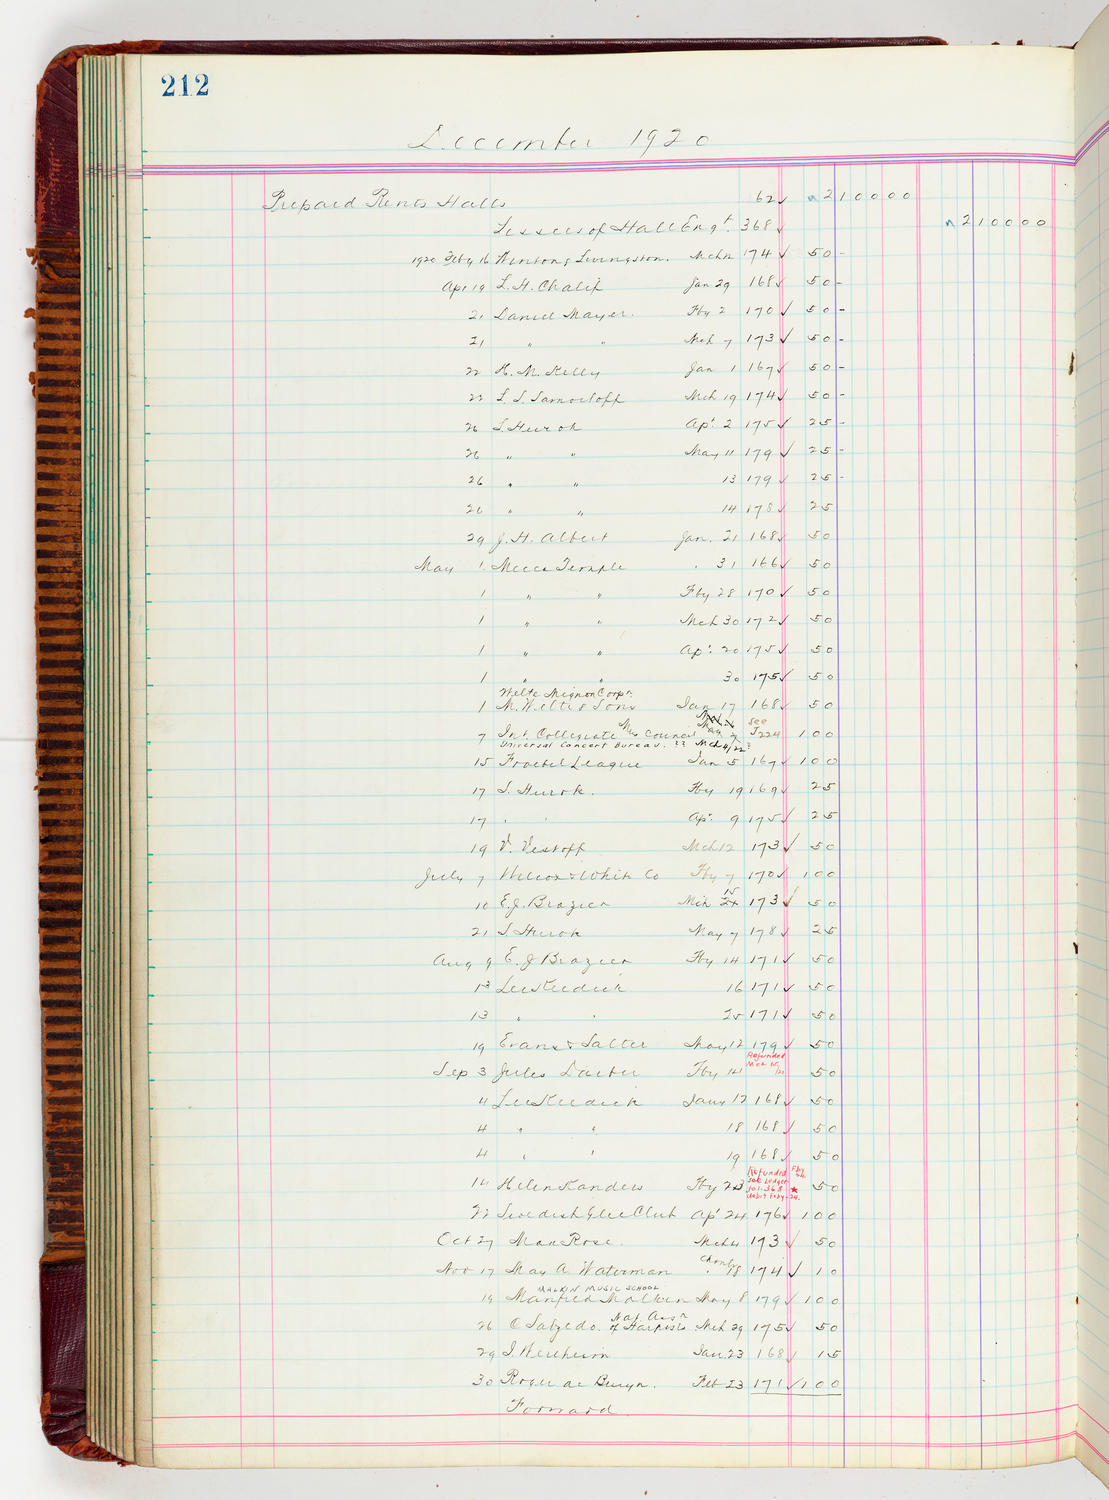 212
December 1920
Prepaid Rents Halls 62 ✓ 2 1 0 0 0 0
Lessees of Hall Engt. 368 ✓ 2 1 0 0 0 0
1920 Feby 16 Winton & Livingston. Mch 174 ✓ 50 -
Apr 19 L. H. Chalif Jan 29 168 ✓ 50 -
21 Daniel Mayer. Fby 2 170 ✓ 50 -
21 " " Mch 7 173 ✓ 50 -
22 H. M. Kelly Jan 1 167 ✓ 50 -
22 L. S. Samoiloff Mch 19 174 ✓ 50 -
26 S. Hurok Apr 2 175 ✓ 25 -
26 " " May 11 179 ✓ 25 -
26 " " 13 179 ✓ 25 -
26 " " 14 178 ✓ 25
29 J. H. Albert Jan. 21 168 ✓ 50
May 1. Mecca Temple . 31 166 ✓ 50
1 " " Fby 28 170 ✓ 50
1 " " Mch 30 172 ✓ 50
1 " " Apr. 20 175 ✓ 50
1 " " 30 175 ✓ 50
Welte Mignon Corpn.
1 M. Welte & Sons Jan 17 168 ✓ 50
7 Int. Collegiate Mus Council May 7 see J224 100
Universal Concert Bureau. ?? Mch 4/22 ?
15 Froebel League Jan 5 167 ✓ 100
17 S. Hurok. Fby 19 169 ✓ 25
17 " " Apr. 9 175 ✓ 25
19 V. Vestoff Mch 12 173 ✓ 50
July 7 Wilcox & White Co Fby 7 170 ✓ 100
15
10 E. J. Brazier Mch 173 ✓ 50
21 S. Hurok May 7 178 ✓ 25
Aug 9 E. J Brazier Fby 14 171 ✓ 50
13 Lee Keedick 16 171 ✓ 50
13 " " 25 171 ✓ 50
19 Evans & Salter May 12 179 ✓ 50
Refunded
Mch 15/21
Sep 3 Jules Daiber Fby 14 50
4 Lee Keedick Jany 17 168 ✓ 50
4 " " 18 168 ✓ 50
4 " " 19 168 ✓ 50
Refunded Fby 24
see Ledger
fol. 368 ★
debit Feby 24.
14 Helen Kanders Fby 23 50
22 Swedish Glee Club Apr 24 176 ✓ 100
Oct 27 Max Rose. Mch 4 173 ✓ 50
Nov 17 May A. Waterman Chmbr 18 174 ✓ 10
MALKIN MUSIC SCHOOL
19 Manfred Malkin May 8 179 ✓ 100
26 C Salzedo. Nat. Assn of Harpists Mch 29 175 ✓ 50
29 S. Wertheim Jan. 23 168 ✓ 15
30 Roger de Bruyn. Feb 23 171 ✓ 100
Forward